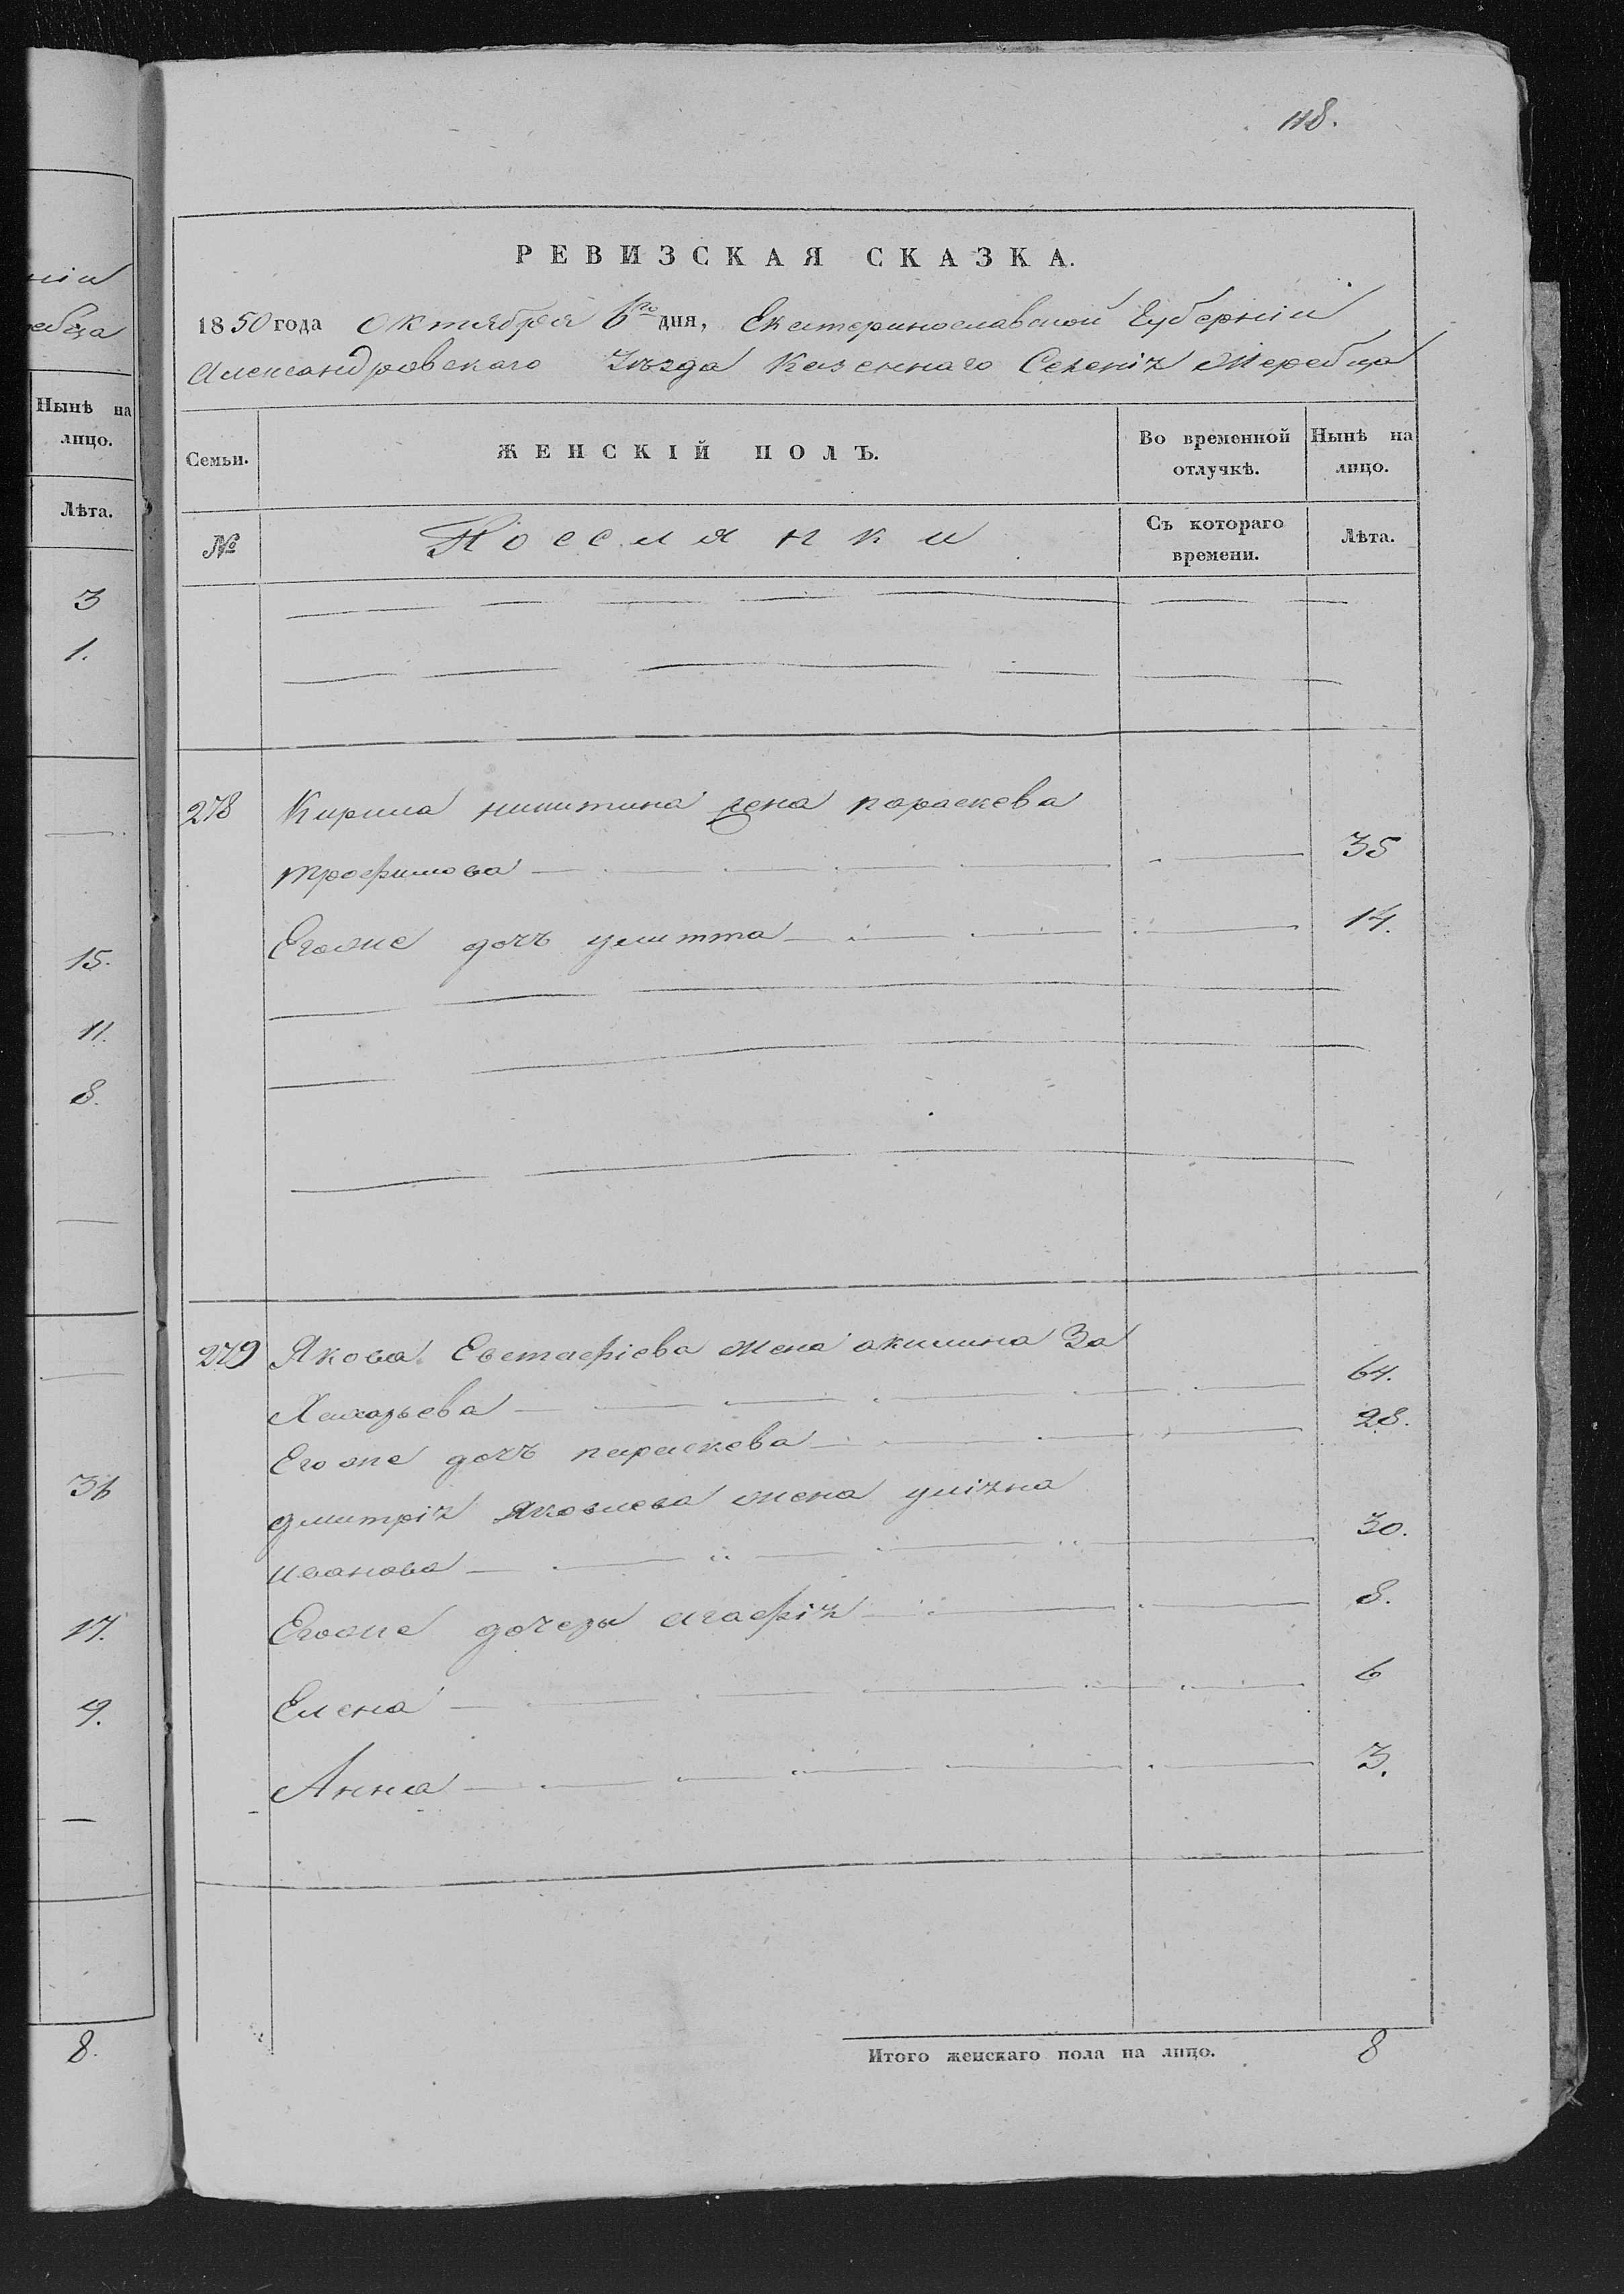 118.
нiи
ребца
Нынѣ на
лицо.
Лѣта.
3
1.
15.
11.
8.
36
17.
9.
8.
РЕВИЗСКАЯ СКАЗКА.
1850 года Октября 6го дня, Екатеринославской Губернiи
Александровскаго Уѣзда Казеннаго Селенiя Жеребца
Семьи.
ЖЕНСКIЙ ПОЛЪ.
Во временной отлучкѣ.
Нынѣ на лицо.
№
Поселянки
Съ котораго времени.
Лѣта.
278 Кирила никитина жена параскева
трофимова 35
Егоже дочь улитта 14.
279 Якова Евстафiева жена акилина За
харьева 64.
Егоже дочь параскева 28.
дмитрiя Яковлева жена улiяна
иванова 30.
Егоже дочеры агафiя 8.
Елена 6
Анна 3.
Итого женскаго пола на лицо. 8